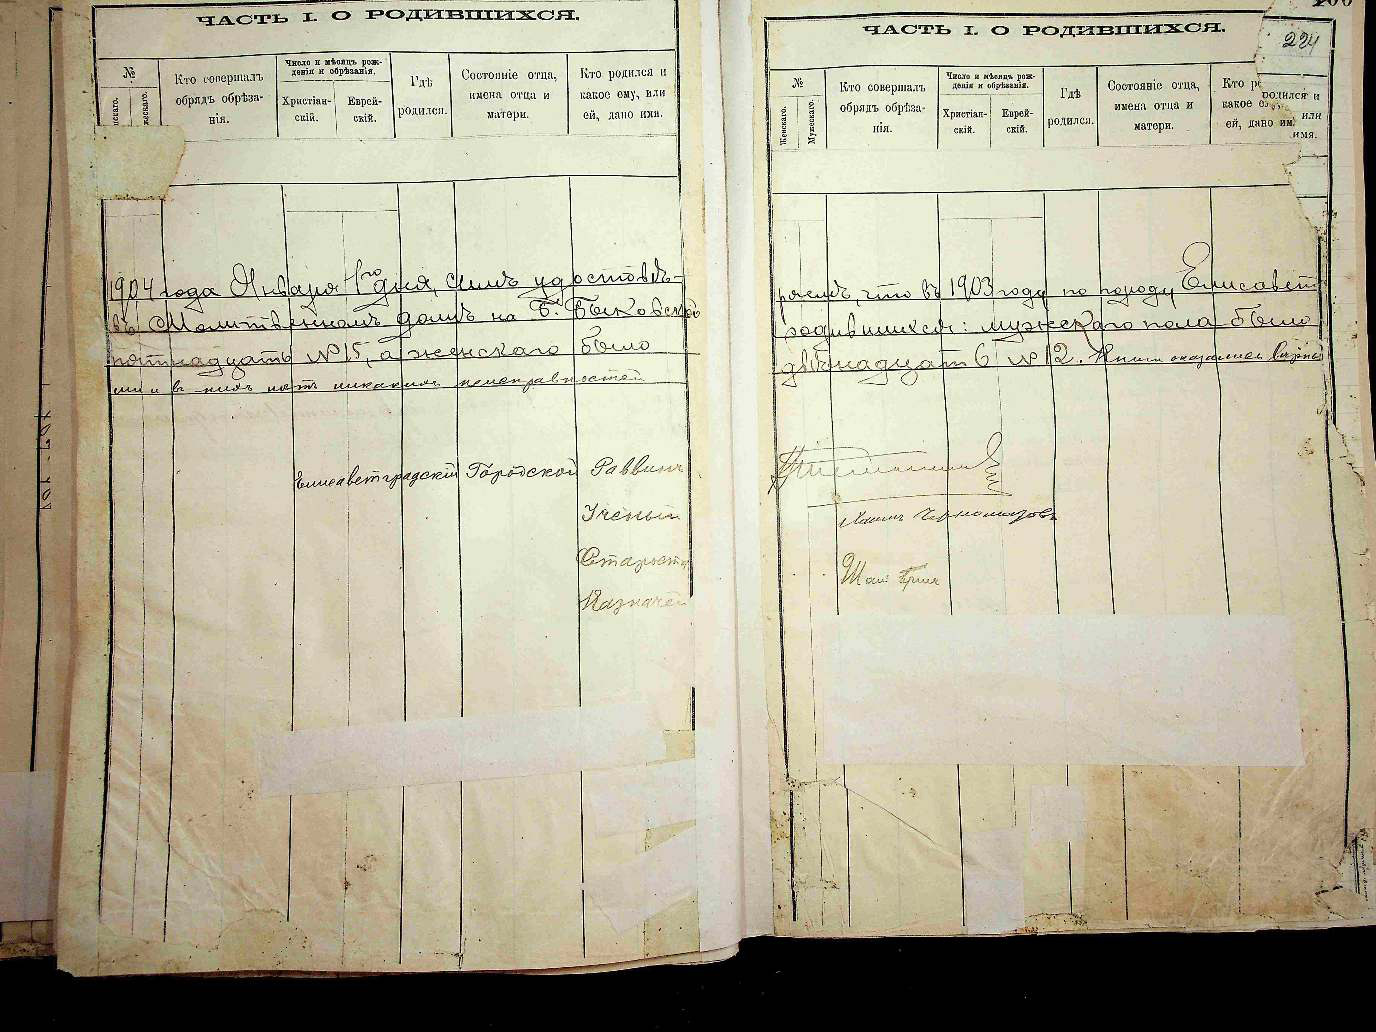 ЧАСТЬ I. О РОДИВШИХСЯ.
№
Мужескаго.
Кто совершалъ
обрядъ обрѣза-
нія.
Число и мѣсяцъ рож-
денія и обрѣзанія.
Христіан-
скій.
Еврей-
скій.
Гдѣ
родился.
Состояніе отца,
имена отца и
матери.
Кто родился и
какое ему, или
ей, дано имя.
1904 года Января 1го дня, симъ удостовѣ-
въ Молитвенномъ домѣ на Б. Быковской
пятнадцать № 15, а женскаго было
ми и въ нихъ нѣтъ никакихъ неисправностей
Елисаветградскій Городской Раввинъ
Ученый
Староста
Казначей
ЧАСТЬ I. О РОДИВШИХСЯ.
224
№
Женскаго.
Мужескаго.
Кто совершалъ
обрядъ обрѣза-
нія.
Число и мѣсяцъ рож-
денія и обрѣзанія.
Христіан-
скій.
Еврей-
скій.
Гдѣ
родился.
Состояніе отца,
имена отца и
матери.
Кто родился и
какое ему, или
ей, дано имя.
ряемъ, что въ 1903 году по городу Елисавет
родившихся: мужескаго пола было
двѣнадцать № 12. Книги оказались вѣрны
Хаимъ Черномазовъ